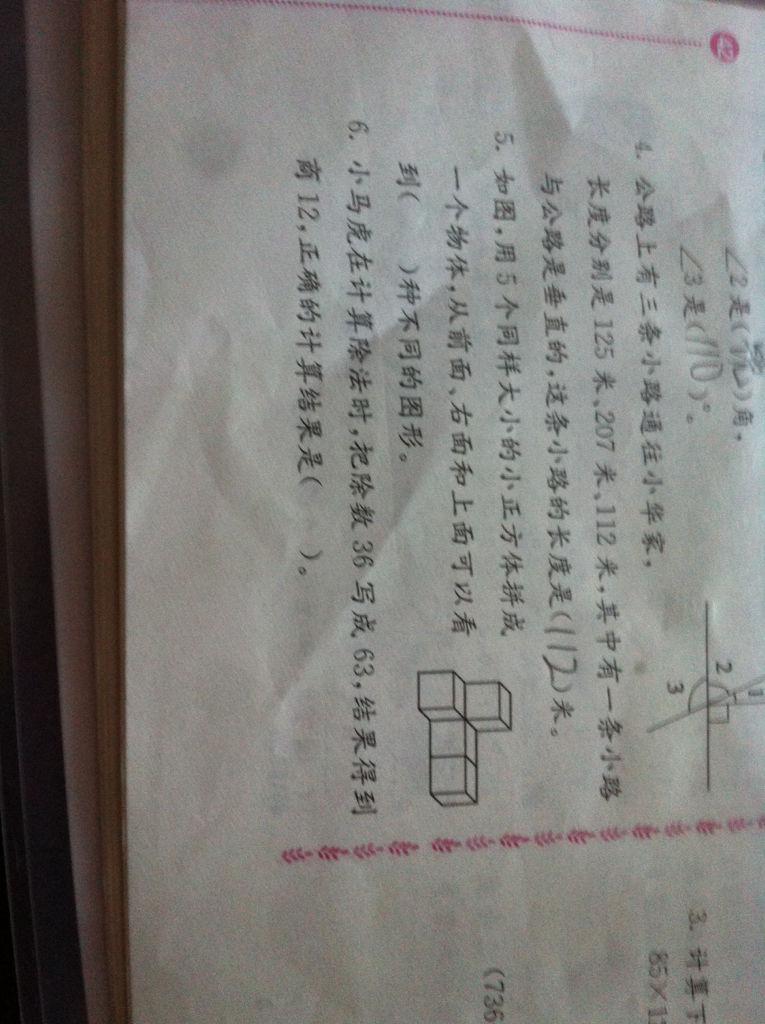 42
∠2是( )角,
∠3是(110)°。
4. 公路上有三条小路通往小华家,
长度分别是125米、207米、112米,其中有一条小路
与公路是垂直的,这条小路的长度是(112)米。
5. 如图,用5个同样大小的小正方体拼成
一个物体,从前面、右面和上面可以看
到( )种不同的图形。
6. 小马虎在计算除法时,把除数36写成63,结果得到
商12,正确的计算结果是( )。
1
2
3
3. 计算下
85×1
(736